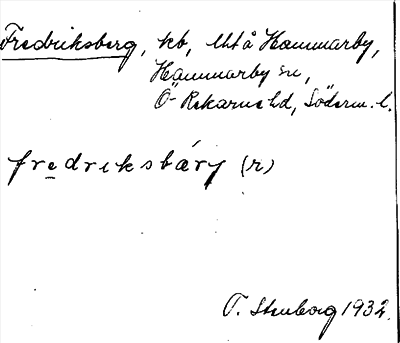 Fredriksberg, kb, Utå Hammarby,
Hammarby sn,
Ö Rekarne hd, Söderm. l.
fredriksbærj (r)
T. Stenborg 1932.